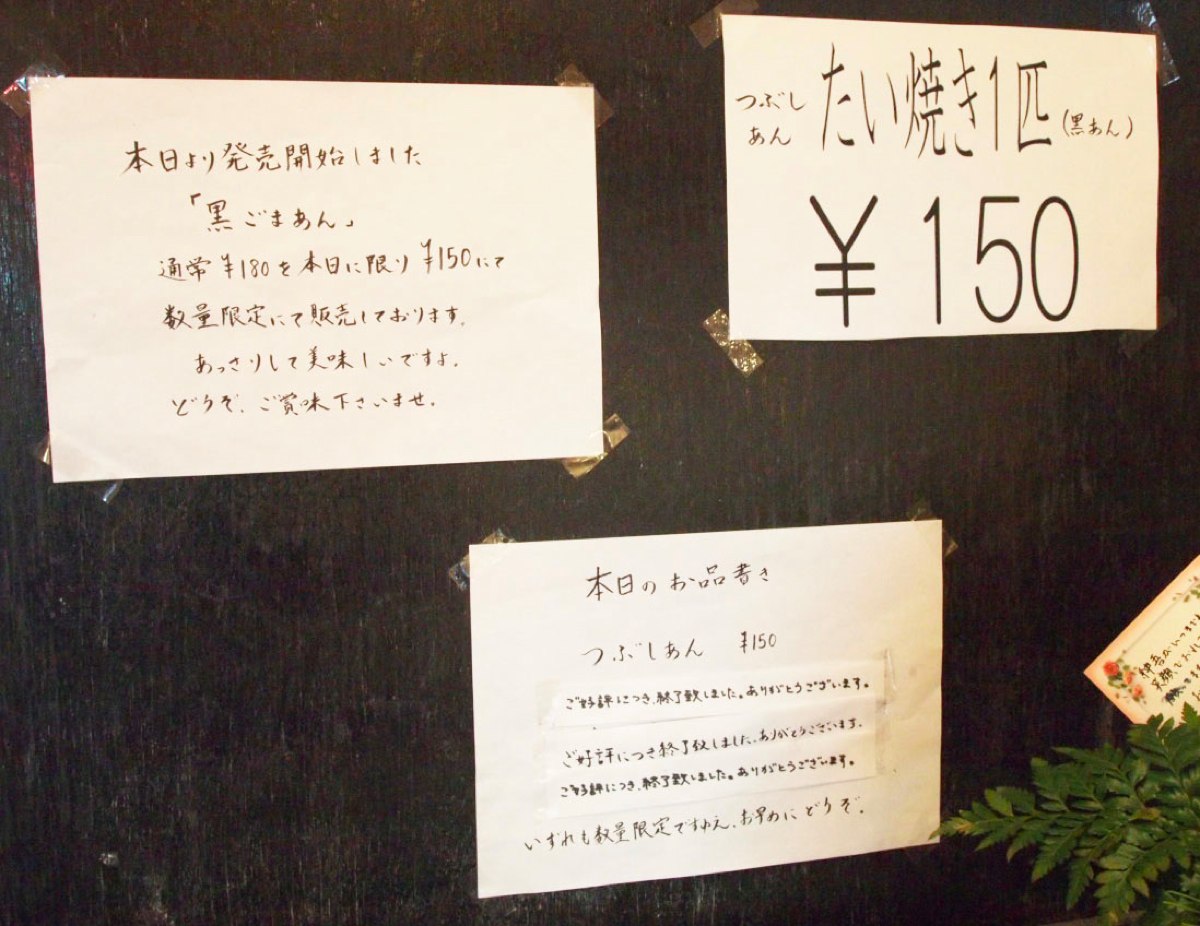 本日より発売開始しました
「黒ごまあん」
通常¥180を本日に限り¥150にて
数量限定にて販売しております。
あっさりして美味しいですよ。
どうぞ、ご賞味下さいませ。
つぶし
あん
たい焼き1匹
(黒あん)
¥150
本日のお品書き
つぶしあん ¥150
ご好評につき、終了致しました。ありがとうございます。
ご好評につき終了致しました、ありがとうございます。
ご好評につき、終了致しました。ありがとうございます。
いずれも数量限定ですゆえ、お早めにどうぞ。